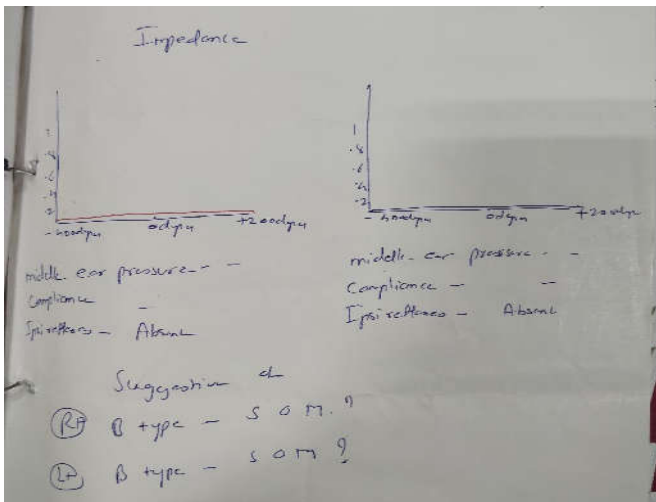 Impedance
1
.8
.6
.4
.2
-400dypu 0dypu +200dypu
middle ear pressure - -
Compliance -
Ipsi reflexes - Absent
1
.8
.6
.4
.2
- 400dypu 0dypu +200dypu
middle ear pressure - -
Compliance - -
Ipsi reflexes - Absent
Suggestive of
Rt B type - S O M ?
Lt B type - S O M ?